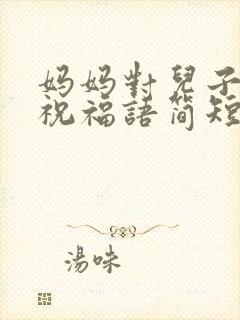 妈妈對兒子
祝福語简短
湯味